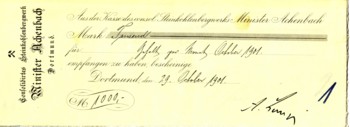 Consolidirtes Steinkohlenbergwerk
Minister Achenbach
Dortmund.
Aus der Kasse des consol. Steinkohlenbergwerks Minister Achenbach
Mark Tausend
für Gehalt pro Monat October 1901.
empfangen zu haben bescheinige
Dortmund den 29. October 1901.
M. 1000,-